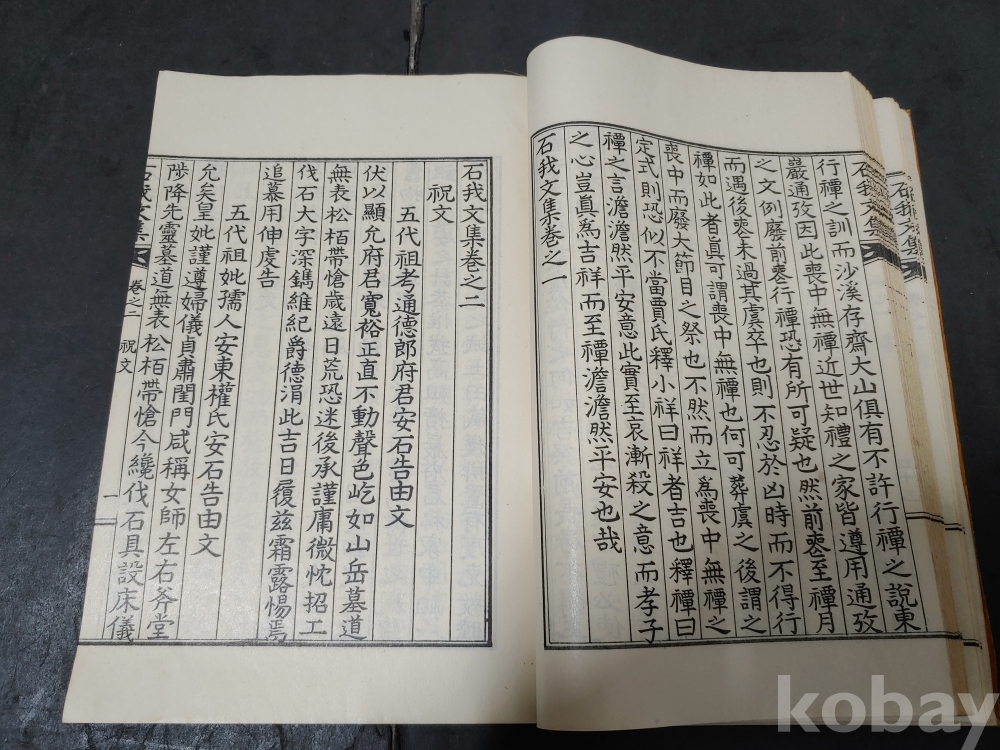 石我文集
行禫之訓而沙溪存齋大山俱有不許行禫之說東
巖通攷因此喪中無禫近世知禮之家皆遵用通攷
之文例廢前喪行禫恐有所可疑也然前喪至禫月
而遇後喪未過其虞卒也則不忍於凶時而不得行
禫如此者眞可謂喪中無禫也何可葬虞之後謂之
喪中而廢大節目之祭也不然而立爲喪中無禫之
定式則恐似不當賈氏釋小祥曰祥者吉也釋禫曰
禫之言澹澹然平安意此實至哀漸殺之意而孝子
之心豈眞爲吉祥而至禫澹澹然平安也哉
石我文集卷之一
石我文集卷之二
祝文
五代祖考通德郎府君安石告由文
伏以顯允府君寬裕正直不動聲色屹如山岳墓道
無表松栢帶愴歲遠日荒恐迷後承謹庸微忱招工
伐石大字深鐫維紀爵德涓此吉日履兹霜露惕焉
追慕用伸虔告
五代祖妣孺人安東權氏安石告由文
允矣皇妣謹遵婦儀貞肅閨門咸稱女師左右斧堂
陟降先靈墓道無表松栢帶愴今纔伐石具設床儀
石我文集
卷之二
祝文
一
kobay